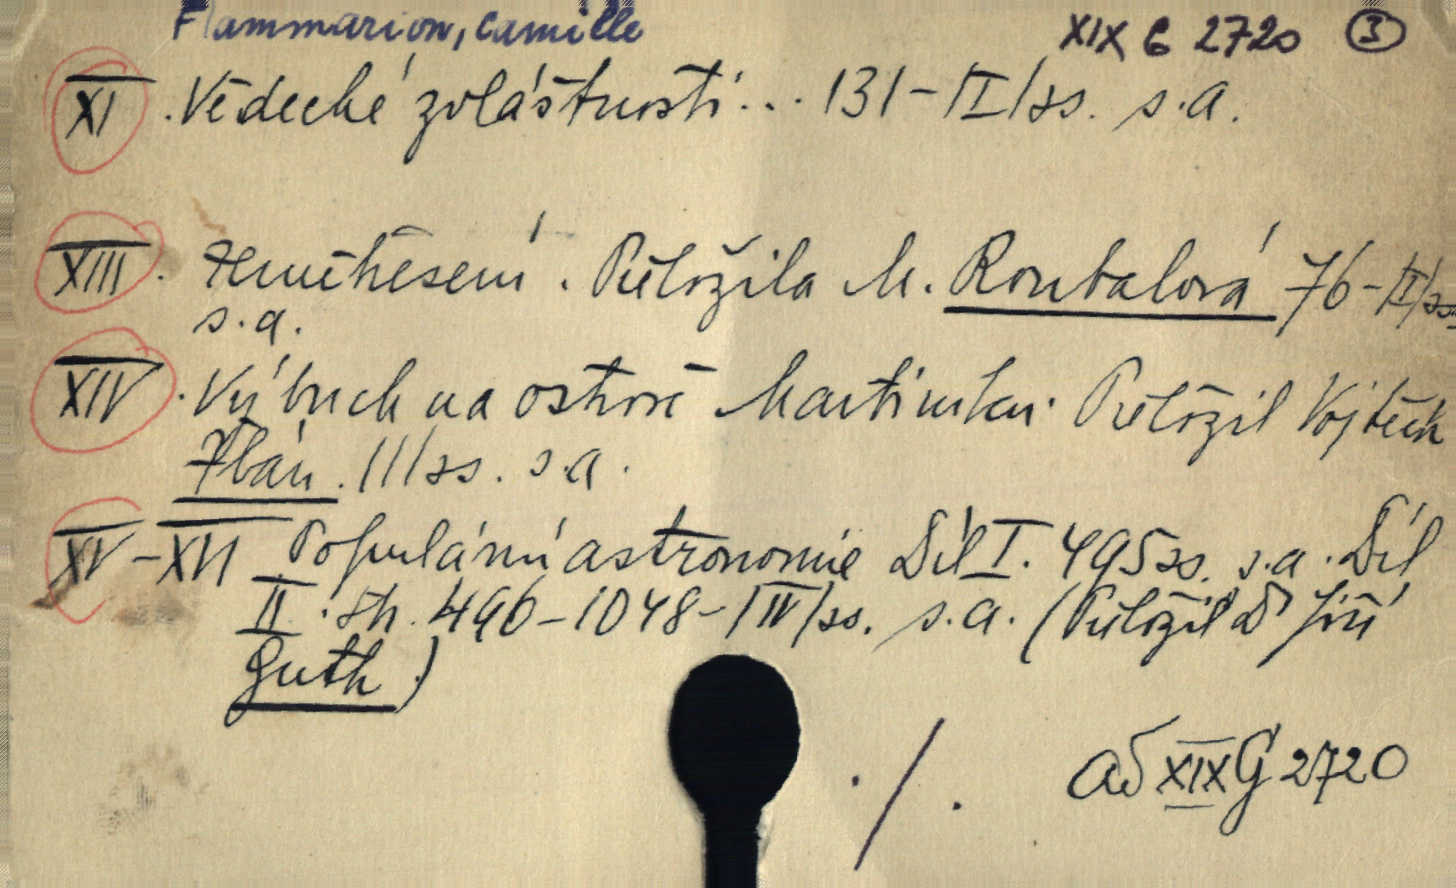 Flammarion, Camille XIX G 2720 3
XI. Vědecké zvláštnosti... 131-|I|ss. s.a.
XIII. Zemětřesení. Přeložila M. Roubalová 76-|I|ss.
s.a.
XIV. Výbuch na ostrově Martiniku. Přeložil Vojtěch
Zbán. 111ss. s.a.
XV-XVI Populární astronomie Díl I. 495ss. s.a. Díl
II. Str. 496-1048-|IV|ss. s.a. (Přeložil Dr Jiří
Guth)
./.
ad XIX G 2720